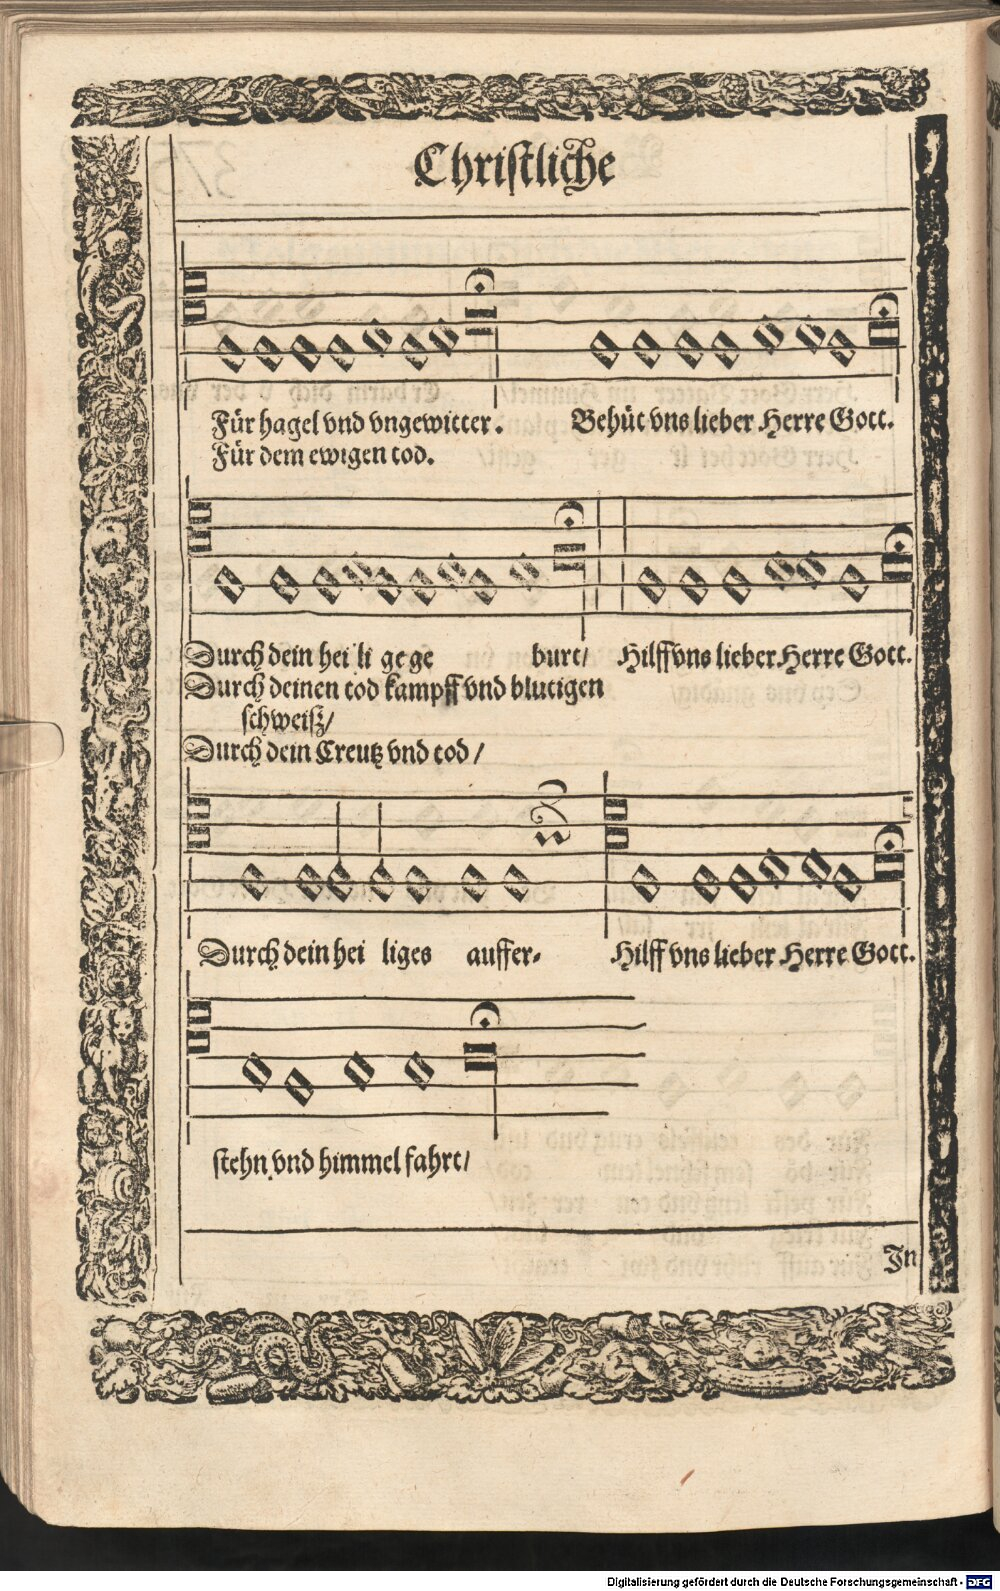 Christliche
Für hagel vnd vngewitter. Behüt vns lieber Herre Gott.
Für dem ewigen tod.
Durch dein hei li ge ge burt/ Hilff vns lieber Herre Gott.
Durch deinen tod kampff vnd blutigen
schweiß/
Durch dein Creutz vnd tod/
Durch dein hei liges auffer- Hilff vns lieber Herre Gott.
stehn vnd himmel fahrt/
In
Digitalisierung gefördert durch die Deutsche Forschungsgemeinschaft - DFG